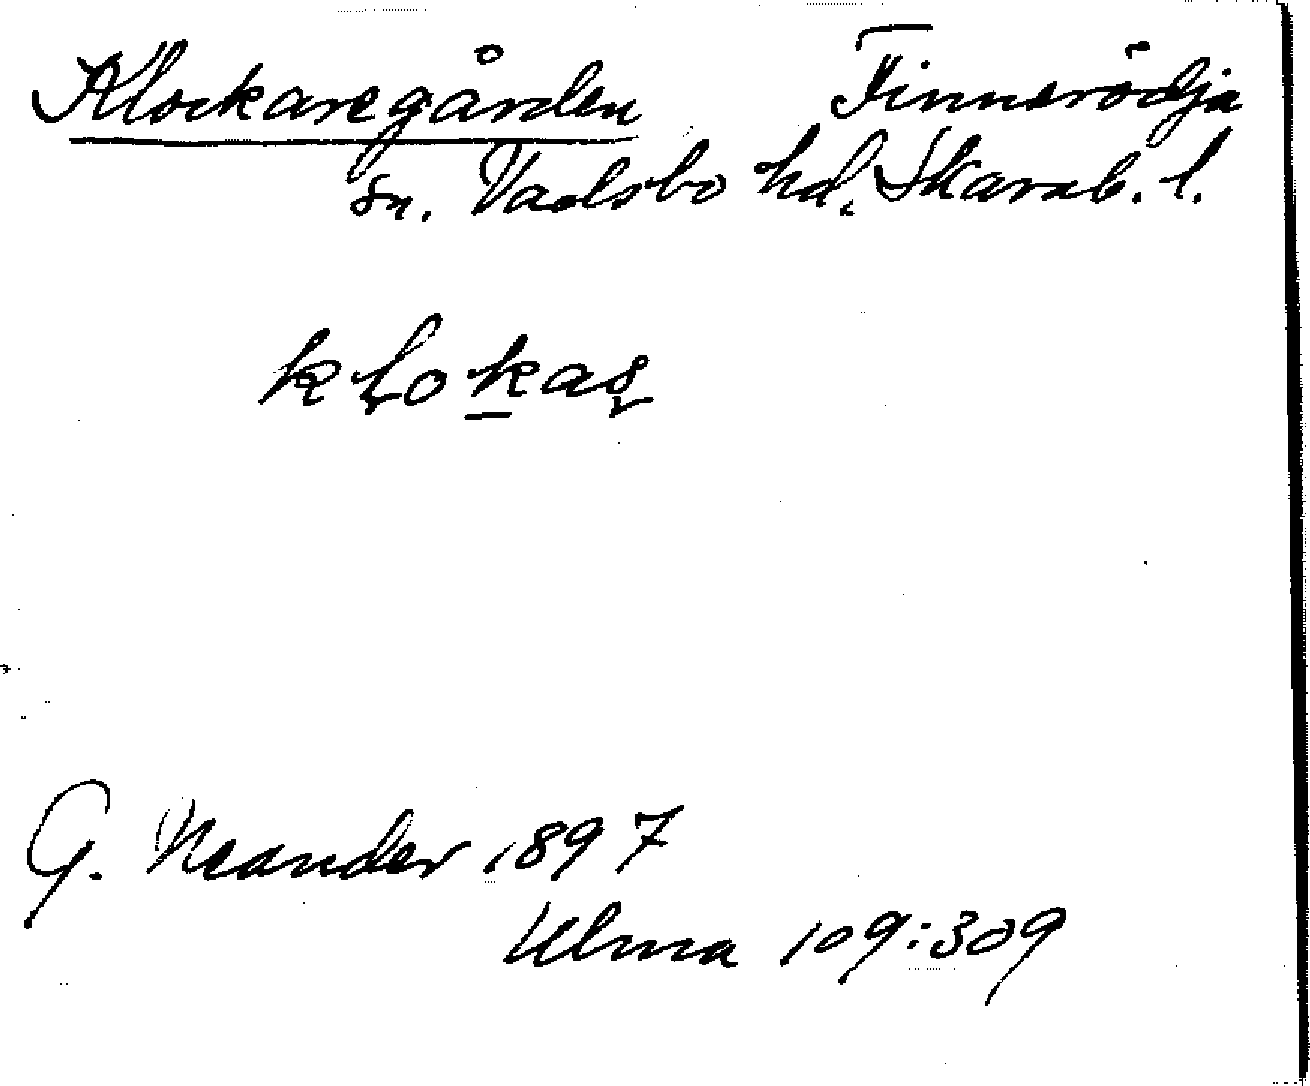 Klockaregården Finnerödja
sn. Vadsbo hd. Skarab. l.
G. Neander 1897
Ulma 109:309